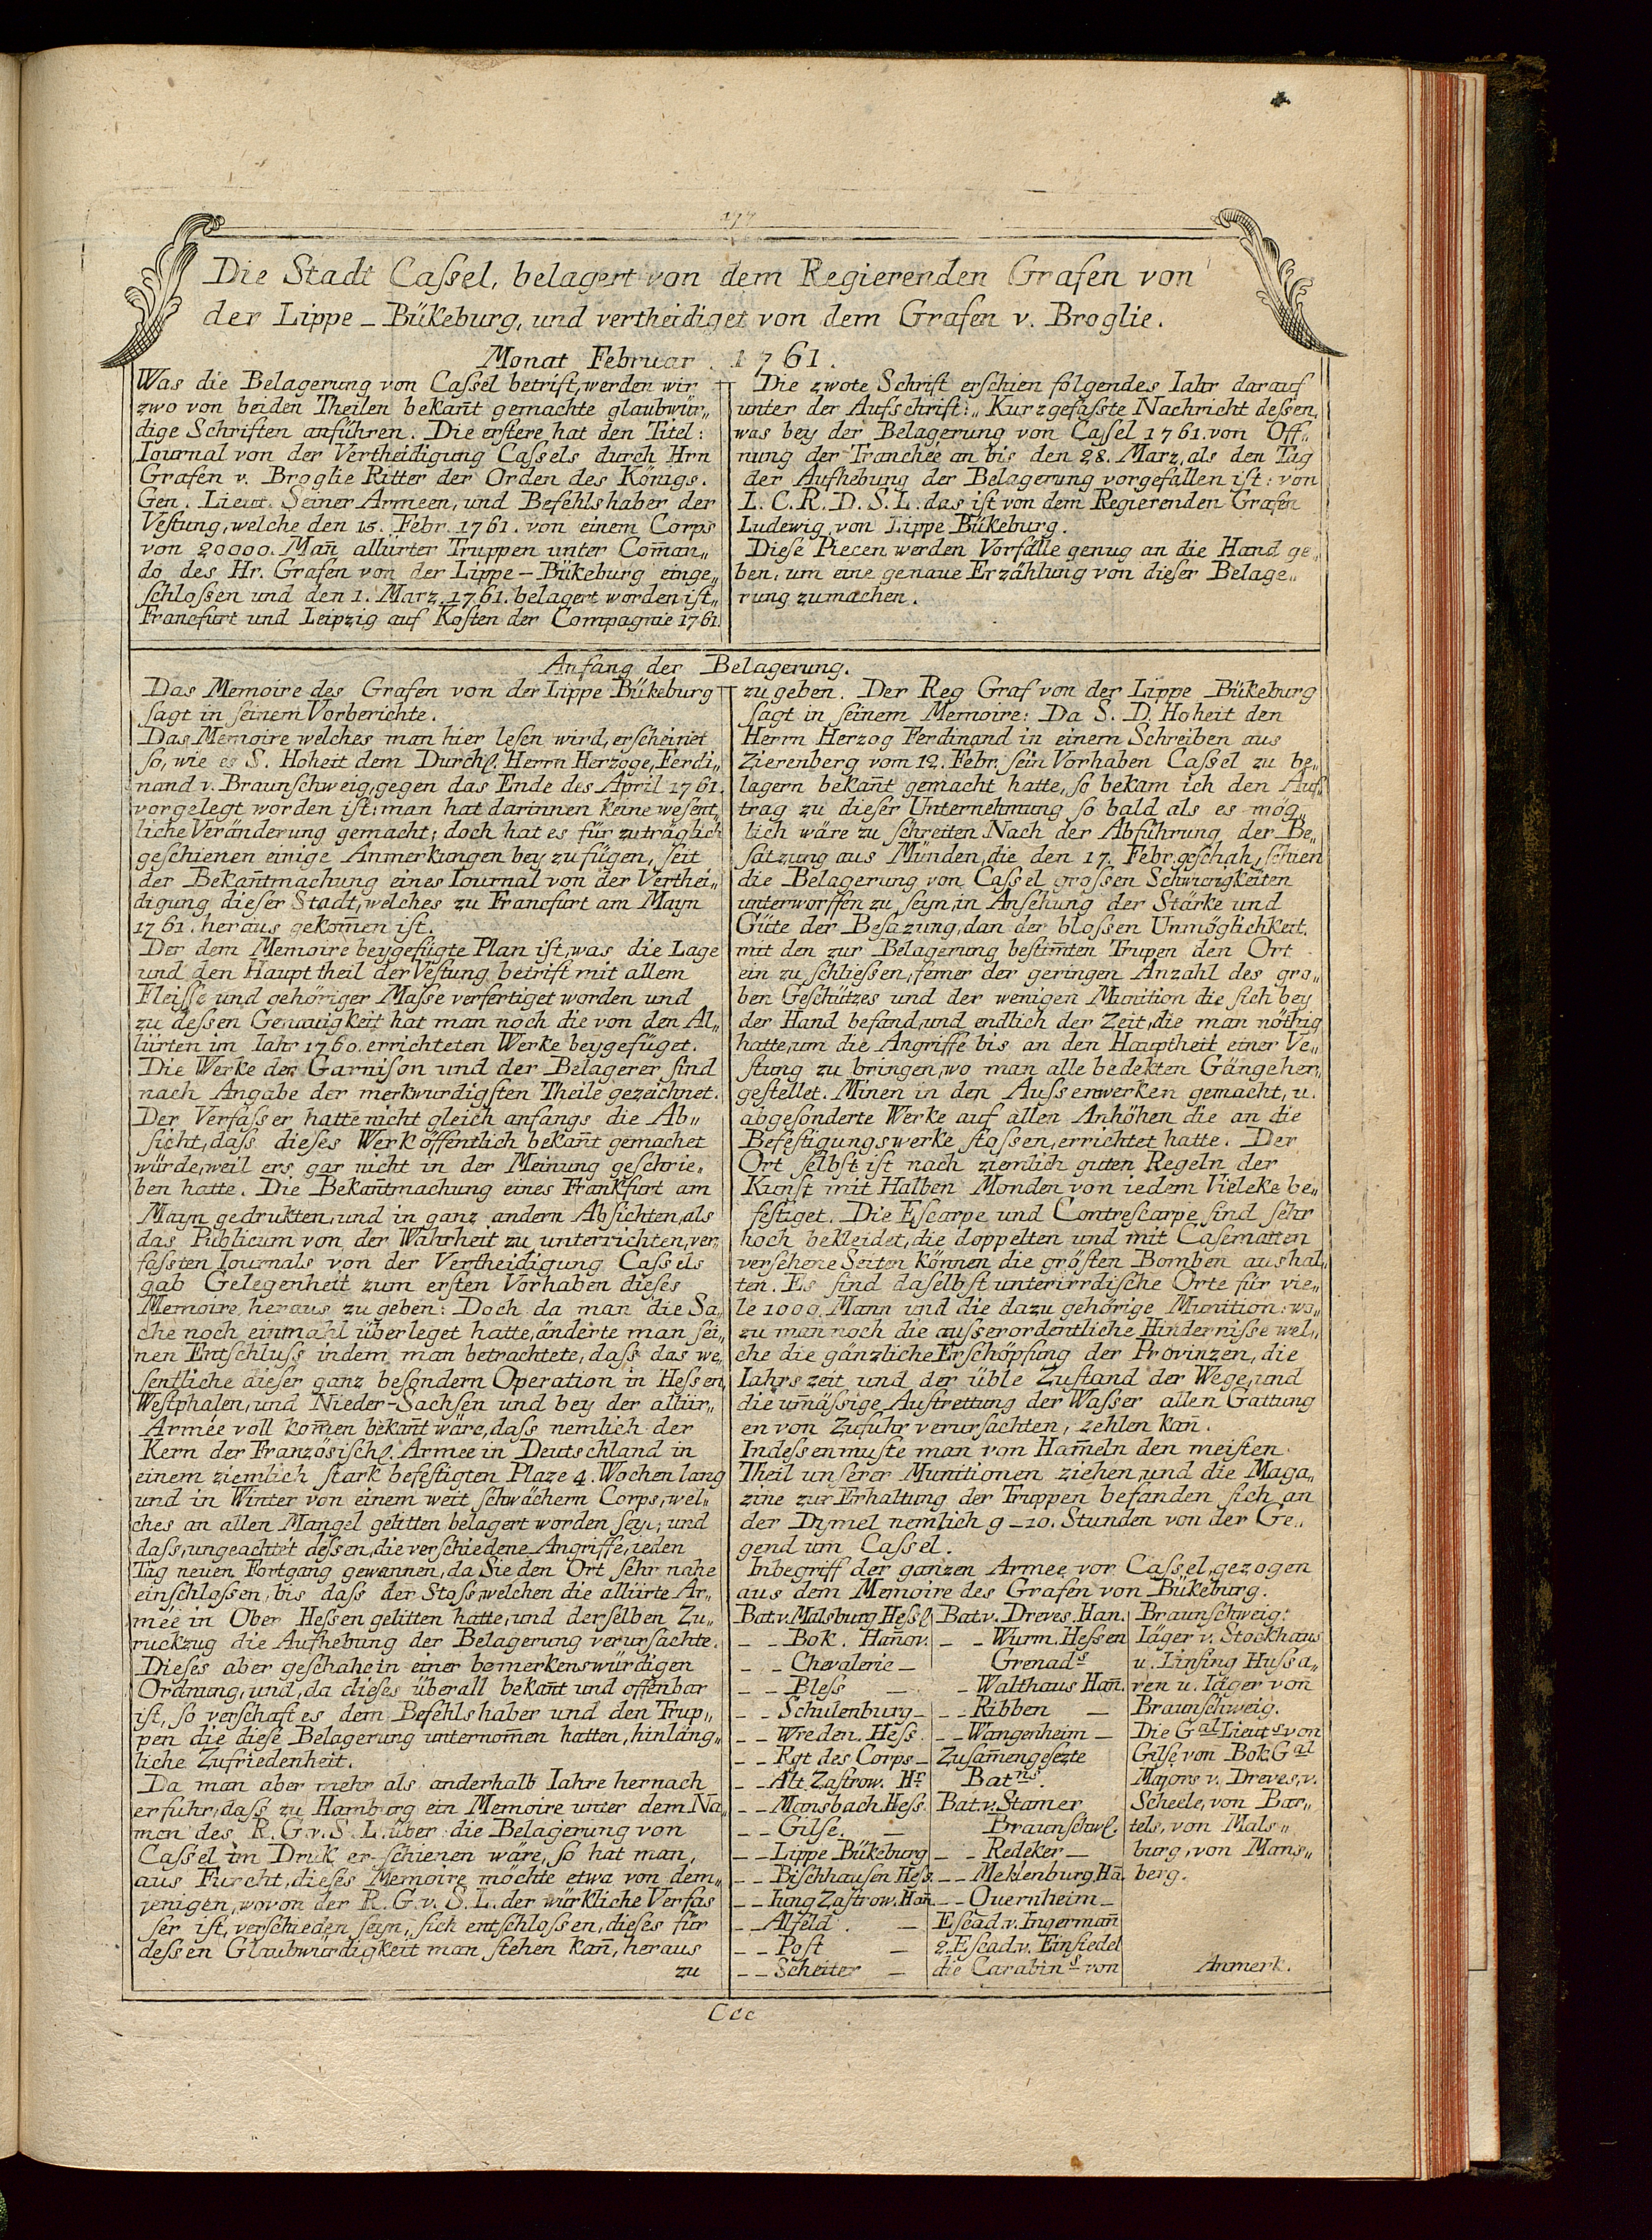 177
Die Stadt Caſsel, belagert von dem Regierenden Grafen von
der Lippe_Bükeburg, und vertheidiget von dem Grafen v. Broglie.
Monat Februar. 1761.
Was die Belagerung von Caſsel betrift, werden wir
zwo von beiden Theilen bekan̄t gemachte glaubwür„
dige Schriften anführen. Die erſtere hat den Titel:
Iournal von der Vertheidigung Caſsels durch Hrn
Grafen v. Broglie Ritter der Orden des Königs.
Gen. Lieut. Seiner Armeen, und Befehlshaber der
Veſtung, welche den 15. Febr. 1761. von einem Corps
von 20000. Man̄ alliirter Truppen unter Com̄an„
do des Hr. Grafen von der Lippe-Bükeburg einge„
ſchloſsen und den 1. Marz 1761. belagert worden iſt„
Francfurt und Leipzig auf Koſten der Compagnie 1761.
Die zwote Schrift erſchien folgendes Iahr darauf
unter der Aufschrift:„ Kurzgefaſste Nachricht deſsen,
was bey der Belagerung von Caſsel 1761. von Öff„
nung der Tranchée an bis den 28. Marz, als den Tag
der Aufhebung der Belagerung vorgefallen iſt: von
L. C. R. D. S. L. das iſt von dem Regierenden Grafen
Ludewig von Lippe Bükeburg.
Dieſe Piecen werden Vorfälle genug an die Hand ge„
ben, um eine genaue Erzählung von dieſer Belage„
rung zumachen.
Anfang der Belagerung.
Das Memoire des Grafen von der Lippe Bükeburg
ſagt in ſeinem Vorberichte.
Das Memoire welches man hier leſen wird, erſcheinet
ſo, wie es S. Hoheit dem Durchl. Herrn Herzoge, Ferdi„
nand v. Braunſchweig, gegen das Ende des April 1761.
vorgelegt worden iſt: man hat darinnen keine weſent„
liche Veränderung gemacht; doch hat es für zuträglich
geſchienen einige Anmerkungen bey zu fügen, ſeit
der Bekan̄tmachung eines Iournal von der Verthei„
digung dieſer Stadt, welches zu Francfurt am Mayn
1761. heraus gekom̄en iſt.
Der dem Memoire beygefügte Plan iſt, was die Lage
und den Haupt theil der Veſtung betrift mit allem
Fleiſse und gehöriger Maſse verfertiget worden und
zu deſsen Genauigkeit hat man noch die von den Al„
liirten im Iahr 1760. errichteten Werke beygefüget.
Die Werke der Garnison und der Belagerer ſind
nach Angabe der merkwurdigſten Theile gezeichnet.
Der Verfaſser hatte nicht gleich anfangs die Ab„
ſicht, daſs dieſes Werk öffentlich bekan̄t gemachet
würde, weil ers gar nicht in der Meinung geſchrie„
ben hatte. Die Bekan̄tmachung eines Frankfurt am
Mayn gedrukten, und in ganz andern Abſichten, als
das Publicum von der Wahrheit zu unterrichten, ver„
faſsten Iournals von der Vertheidigung Caſsels
gab Gelegenheit zum ersten Vorhaben dieſes
Memoire heraus zu geben: Doch da man die Sa„
che noch einmahl überleget hatte, änderte man ſei„
nen Entſchluſs indem man betrachtete, daſs das we„
ſentliche dieſer ganz beſondern Operation in Heſsen,
Weſtphalen, und Nieder-Sachſen und bey der alliir„
Armée voll kom̄en bekan̄t wäre, daſs nemlich der
Kern der Franzöſiſchl. Armee in Deutschland in
einem ziemlich ſtark befeſtigten Plaze 4. Wochen lang
und in Winter von einem weit ſchwächern Corps, wel„
ches an allen Mangel gelitten belagert worden ſey; und
daſs, ungeachtet deſsen, die verſchiedene Angriffe, ieden
Tag neuen Fortgang gewannen, da Sie den Ort ſehr nahe
einſchloſsen, bis daſs der Stoſs, welchen die alliirte Ar„
mée in Ober Heſsen gelitten hatte, und derſelben Zu„
ruckzug die Aufhebung der Belagerung verurſachte.
Dieſes aber geſchahe in einer bemerkenswürdigen
Ordnung, und, da dieſes überall bekan̄t und offenbar
iſt, ſo verſchaft es dem Befehlshaber und den Trup„
pen die dieſe Belagerung unternom̄en hatten, hinläng„
liche Zufriedenheit.
Da man aber mehr als anderhalb Iahre hernach
erfuhr, daſs zu Hamburg ein Memoire unter dem Na„
men des R. G. v. S. L. über die Belagerung von
Caſsel im Druk er-ſchienen wäre, ſo hat man,
aus Furcht, dieſes Memoire möchte etwa von dem„
jenigen, wovon der R. G. v. S. L. der würkliche Verfaſ
ſer iſt, verſchieden ſeyn, ſich entſchloſsen, dieſes für
deſsen Glaubwürdigkeit man ſtehen kan̄, heraus
zu
zu geben. Der Reg Graf von der Lippe Bükeburg
ſagt in ſeinem Memoire: Da S. D. Hoheit den
Herrn Herzog Ferdinand in einem Schreiben aus
Zierenberg vom 12. Febr. ſein Vorhaben Caſsel zu be„
lagern bekan̄t gemacht hatte, ſo bekam ich den Auf„
trag zu dieſer Unternehmung ſo bald als es mög„
lich wäre zu ſchretten Nach der Abführung der Be„
satzung aus Münden, die den 17. Febr. geſchah, ſchien
die Belagerung von Caſsel groſsen Schwurigkeiten
unterworffen zu ſeyn, in Anſehung der Stärke und
Güte der Beſazung, dan der bloſsen Unmöglichkeit,
mit den zur Belagerung beſtim̄ten Trupen den Ort
ein zu ſchlieſsen, ferner der geringen Anzahl des gro„
ben Geſchützes und der wenigen Munition die ſich bey
der Hand befand, und endlich der Zeit, die man nöthig
hatte, um die Angriffe bis an den Hauptheit einer Ve„
ſtung zu bringen, wo man alle bedekten Gänge her„
geſtellet. Minen in den Auſsenwerken gemacht, u.
abgeſonderte Werke auf allen Anhöhen die an die
Befeſtigungswerke ſtoſsen, errichtet hatte. Der
Ort ſelbst iſt nach ziemlich guten Regeln der
Kunſt mit Halben Monden von iedem Vieleke be„
feſtiget. Die Eſcarpe und Contreſcarpe ſind ſehr
hoch bekleidet, die doppelten und mit Caſematten
verſehene Seiten können die gröſten Bomben aushal„
ten. Es ſind daſelbſt unterirrdiſche Orte für vie„
le 1000. Mann und die dazu gehörige Munition: wo„
zu man noch die auſserordentliche Hinderniſse wel„
che die gänzliche Erſchöpfung der Provinzen, die
Iahrszeit und der üble Zuſtand der Wege, und
die um̄äſsige Austrettung der Waſser allen Gattung
en von Zufuhr verurſachten, zehlen kan̄.
Indeſsen muſte man von Ham̄eln den meiſten
Theil unſerer Munitionen ziehen und die Maga„
zine zur Erhaltung der Truppen befanden ſich an
der Dymel nemlich 9_10. Stunden von der Ge„
gend um Caſsel.
Inbegriff der ganzen Armee vor Caſsel, gezogen
aus dem Memoire des Grafen von Bükeburg.
Bat. v. Malsburg Heſsl.
_ _ Bok. Han̄ov.
_ _ Chevalerie _
_ _ Bleſs _
_ _ Schulenburg _
_ _ Wreden. Heſs.
_ _ Rgt des Corps _
_ _ Alt Zaſtrow. Hr
_ _ Mansbach Heſs.
_ _ Gilſe. _
_ _ Lippe Bükeburg
_ _ Biſchhauſen Heſs.
_ _ Iung Zaſtrow. Han̄
_ _ Alfeld. _
_ _ Poſt _
_ _ Scheiter _
Bat. v. Dreves. Han.
_ _ Wurm. Heſsen
Grenads
_ Walthaus Han̄.
_ _ Ribben _
_ _ Wangenheim _
Zuſam̄engeſezte
Batns.
Bat. v. Stamer
Braunſchwl.
_ _ Redeker _
_ _ Meklenburg. Hā.
_ _ Quernheim _
Eſcad. v. Ingerman̄
2. Eſcad. v. Einſiedel
die Carabins von
Braunſchweig:
Iäger v. Stockhaus
u. Linſing Huſsa„
ren u. Iäger von
Braunſchweig.
Die Gal Lieuts von
Gilſe von Bok. Gal
Majors v. Dreves, v.
Scheele, von Bar„
tels, von Mals„
burg, von Mans„
berg.
Anmerk.
Ccc